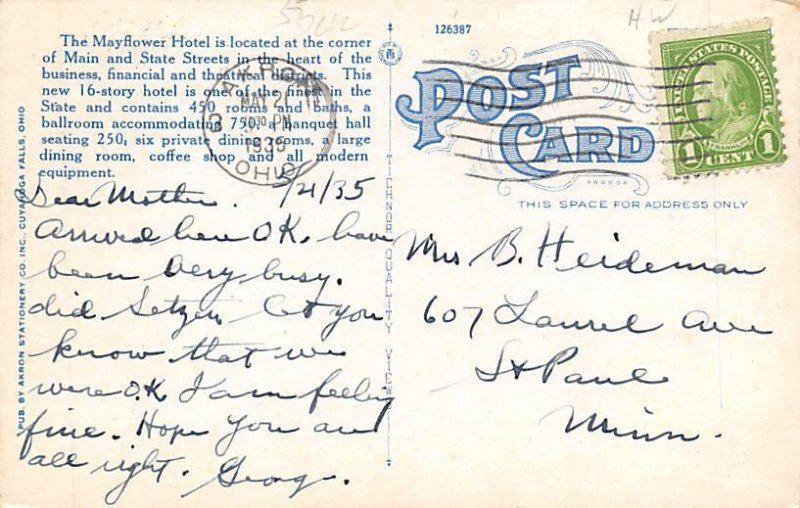 126387
HW
The Mayflower Hotel is located at the corner
of Main and State Streets in the heart of the
business, financial and theatrical districts. This
new 16-story hotel is one of the finest in the
State and contains 450 rooms and baths, a
ballroom accommodating 750, a banquet hall
seating 250, six private dining rooms, a large
dining room, coffee shop and all modern
equipment.
AKRON
MAY 21
30 PM
1935
OHIO
3
POST
CARD
THIS SPACE FOR ADDRESS ONLY
UNITED STATES POSTAGE
FRANKLIN
1 CENT 1
PUB. BY AKRON STATIONERY CO. INC., CUYAHOGA FALLS, OHIO
TICHNOR QUALITY VIEWS
5/21/35
Dear Mother.
Arrived here OK. have
been very busy.
did Setzer let you
know that we
were O.K. I am feeling
fine. Hope you are
all right. George.
Mrs B. Heideman
607 Laurel Ave
St Paul
Minn.